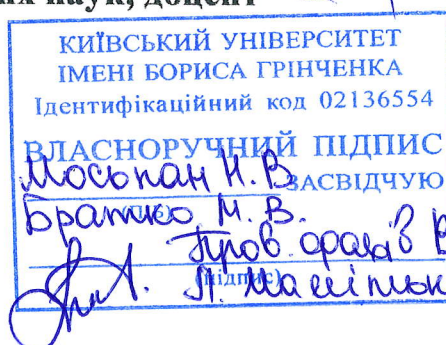 наук, доцент
КИЇВСЬКИЙ УНІВЕРСИТЕТ
ІМЕНІ БОРИСА ГРІНЧЕНКА
Ідентифікаційний код 02136554
ВЛАСНОРУЧНИЙ ПІДПИС
Мосьпан Н.В.
ЗАСВІДЧУЮ
Братко М.В.
Пров
(підпис)